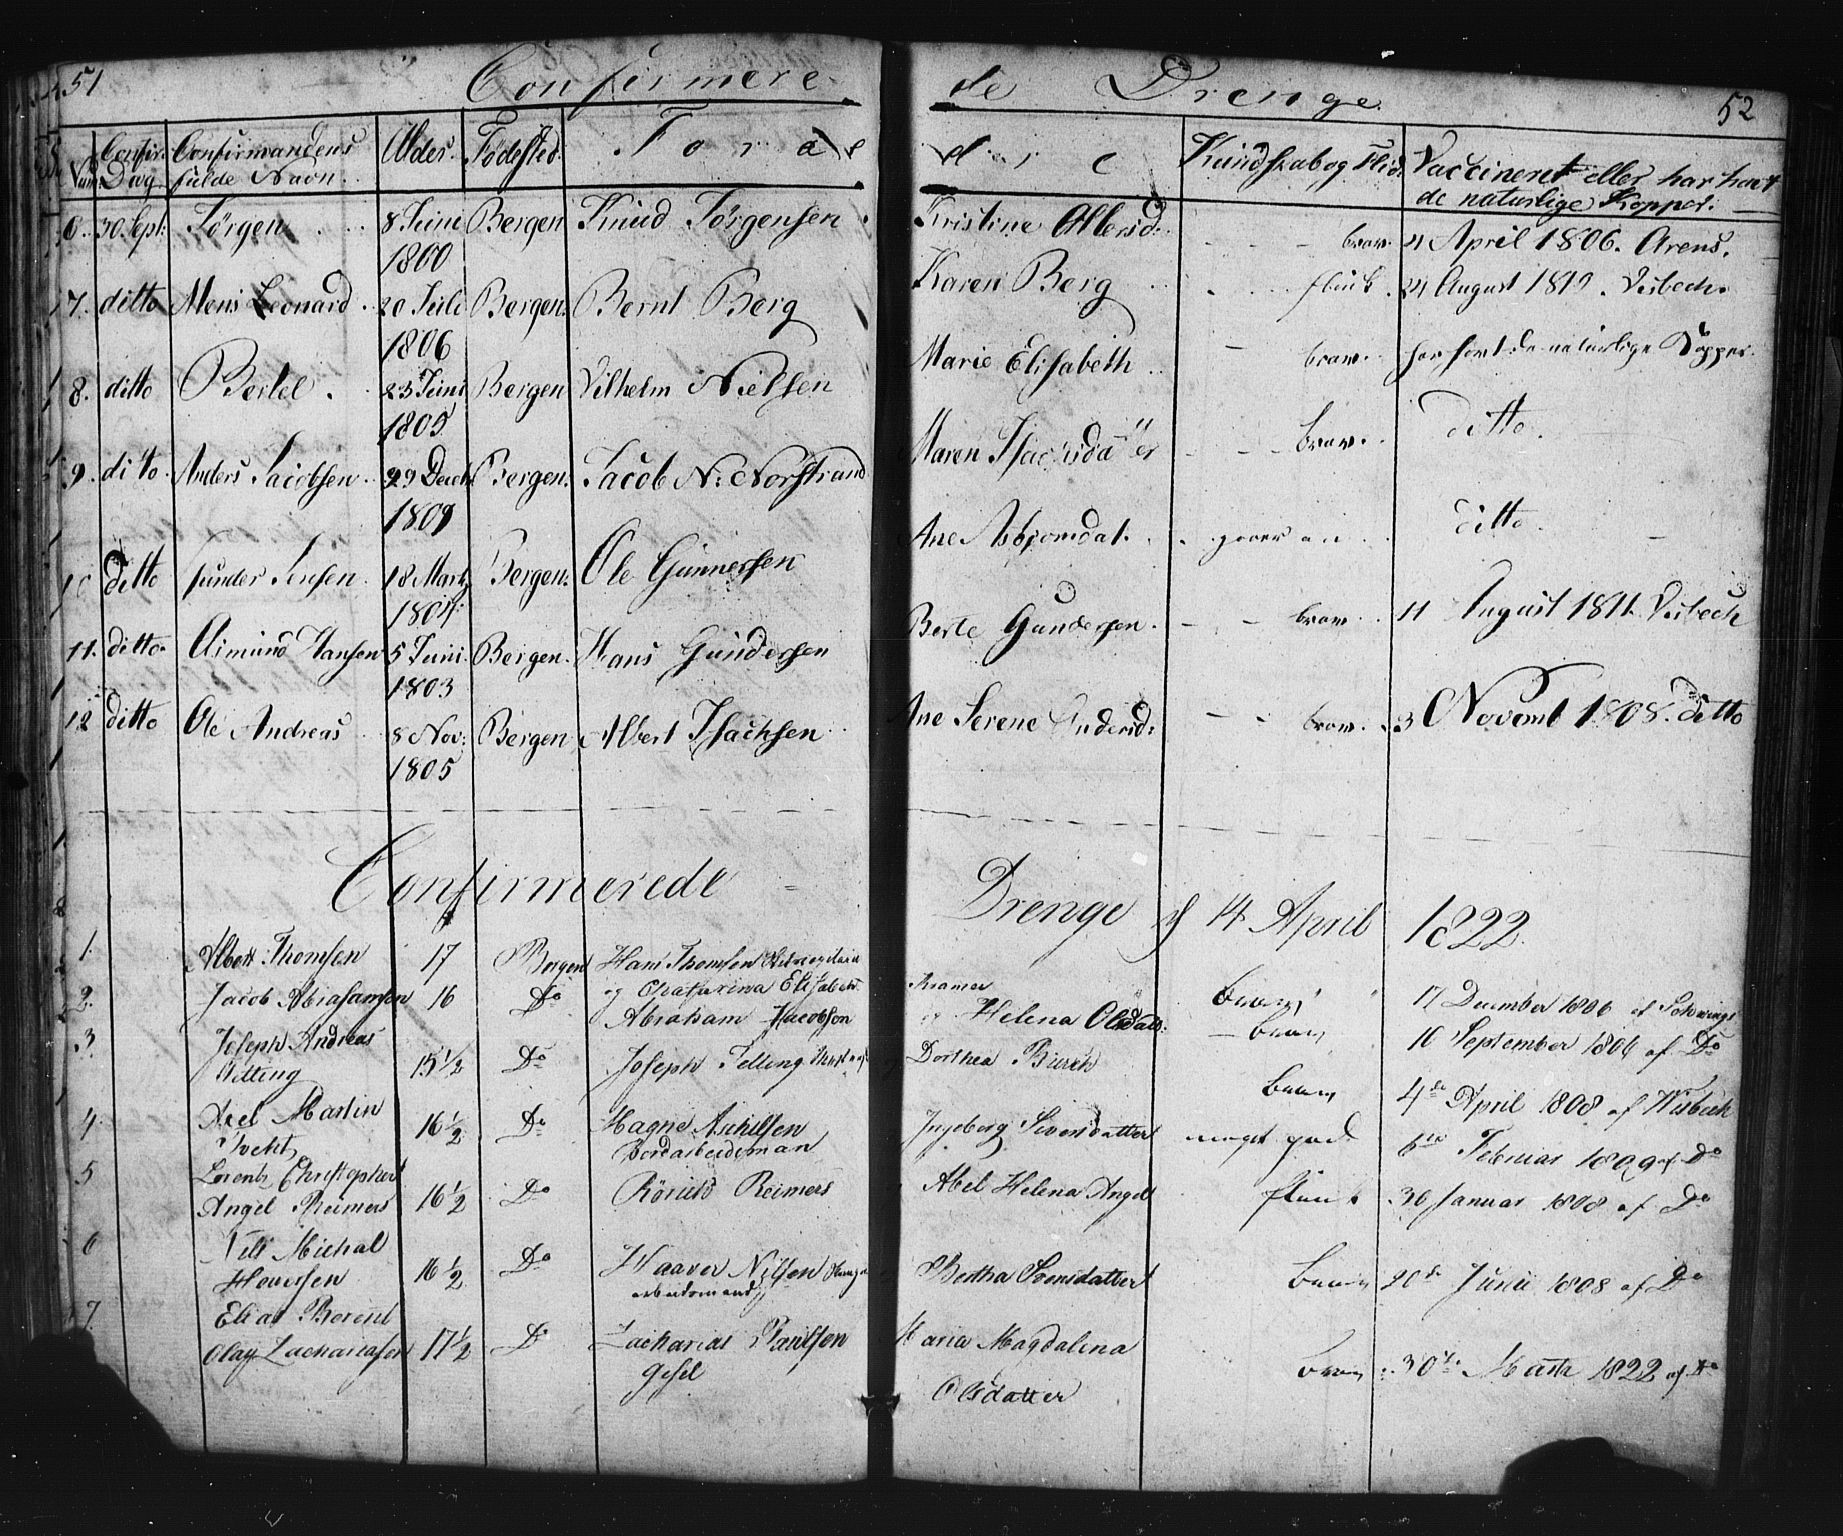 51 Confirmere
de Drenge. 52
Num: Confir: Dag. Confirmandens fulde Navn. Alder. Födested. Foræl
dere Kundskab og Flid. Vaccineret eller har havt de naturlige Kopper.
6. 30. Sept: Jörgen 8 Juni 1800 Bergen Knud Jörgensen
Kristine Ollersd. brav. 21 April 1806. Arens.
7. ditto Mens Leonard 20 Juli 1806 Bergen. Bernt Berg
Karen Berg flink 21 August 1810. Visbech.
8. ditto Bertel. 23 Juni 1805 Bergen Vilhelm Nielsen
Marie Elisabeth brav. har havt de naturlige Kopper.
9. ditto Anders Jacobsen 29 Decbr 1801 Bergen. Jacob N: Norstrand
Maren Isachsdatter brav. ditto.
10 ditto Gunder Jensen 18 Marty 1804 Bergen. Ole Gunnersen
Ane ditto.
11. ditto. Aimund Hansen 5 Juni 1803 Bergen. Hans Gundersen
Berte Gundersen. brav. 11 August 1811. Visbech
12 ditto Ole Andreas 8 Nov: 1805 Bergen Albert Isachsen
Ane Serene Andersd: brav. 23 Novemb 1808. ditto
Confirmerede
Drenge d 14 April 1822.
1. Albert Thomsen 17 Bergen Hans Thomsen
og Chatarina Elisabeth Kramer brav 17 December 1806 af
2. Jacob Abrahamsen 16 Do Abraham Jacobsen
og Helena Olsdatt: brav 10 September 1806 af Do
3. Joseph Andreas
Welling 15 1/2 Do Joseph
Dorthea brav 4de April 1808 af Wisbech
4. Axel Martin
16 1/2 Do Hagne Askilsen
Bordarbeidsman
Ingeborg Siversdatter meget god 6te Februar 1809 af Do
5 Lorentz Christopher
Angel Reimers 16 1/2 Do Rörich Reimers
Abel Helena Angel flink 30 Januar 1808 af Do
6 Nils Michal
Hoversen 16 1/2 Do Haaver Nilsen
arbeidsmand
Bertha Svensdatter brav 20de Junii 1808 af Do
7 Elias Berent
Olay Zachariasen 17 1/2 Do Zacharias Paulsen
Gesel
Maria Magdalena
Olsdatter brav 30te Marts 1822 af Do